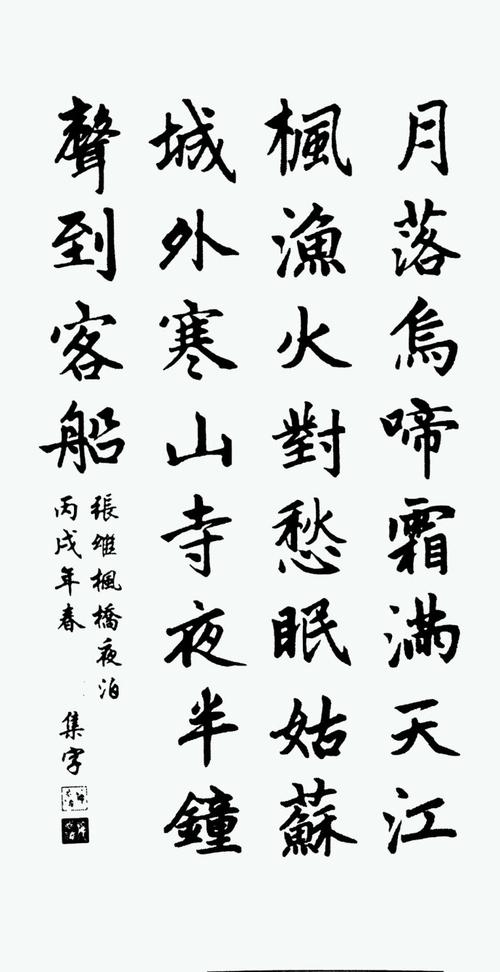 月落烏啼霜滿天江
楓漁火對愁眠姑蘇
城外寒山寺夜半鐘
聲到客船
張繼楓橋夜泊
丙戌年春
集字